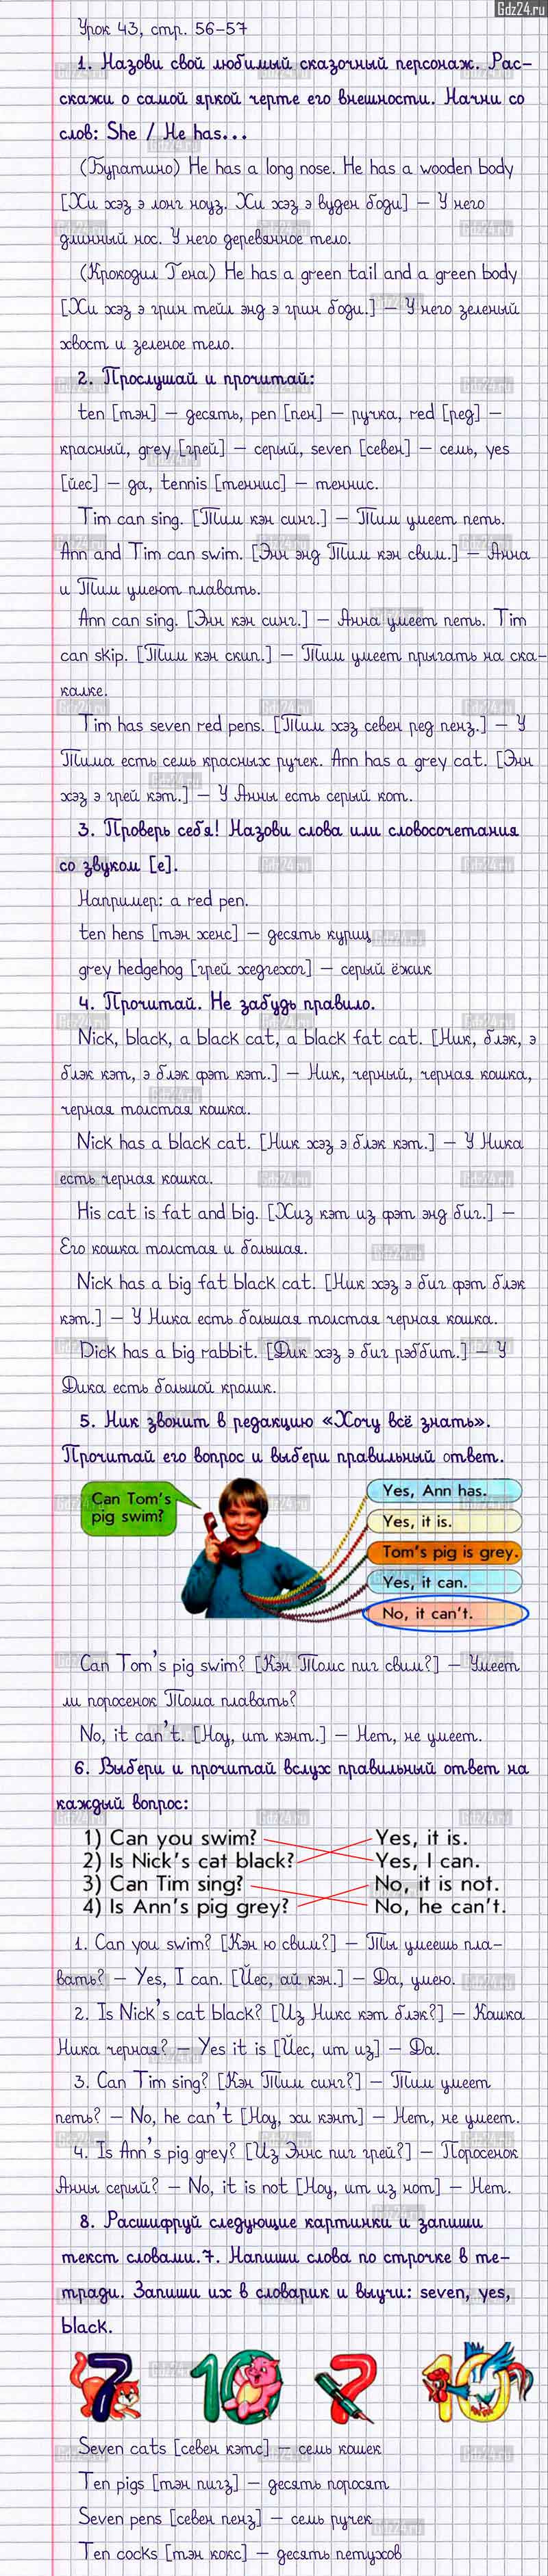 Gdz24.ru
Урок 43, стр. 56-57
1. Назови свой любимый сказочный персонаж. Рас-
скажи о самой яркой черте его внешности. Начни со
слов: She / He has...
(Буратино) He has a long nose. He has a wooden body
[Хи хэз э лонг ноуз. Хи хэз э вуден боди] – У него
длинный нос. У него деревянное тело.
(Крокодил Гена) He has a green tail and a green body
[Хи хэз э грин тейл энд э грин боди.] – У него зеленый
хвост и зеленое тело.
2. Прослушай и прочитай:
ten [тэн] – десять, pen [пен] – ручка, red [ред] –
красный, grey [грей] – серый, seven [севен] – семь, yes
[йес] – да, tennis [теннис] – теннис.
Tim can sing. [Тим кэн синг.] – Тим умеет петь.
Ann and Tim can swim. [Энн энд Тим кэн свим.] – Анна
и Тим умеют плавать.
Ann can sing. [Энн кэн синг.] – Анна умеет петь. Tim
can skip. [Тим кэн скип.] – Тим умеет прыгать на ска-
калке.
Tim has seven red pens. [Тим хэз севен ред пенз.] – У
Тима есть семь красных ручек. Ann has a grey cat. [Энн
хэз э грей кэт.] – У Анны есть серый кот.
3. Проверь себя! Назови слова или словосочетания
со звуком [e].
Например: a red pen.
ten hens [тэн хенс] – десять куриц
grey hedgehog [грей хедгехог] – серый ёжик
4. Прочитай. Не забудь правило.
Nick, black, a black cat, a black fat cat. [Ник, блэк, э
блэк кэт, э блэк фэт кэт.] – Ник, черный, черная кошка,
черная толстая кошка.
Nick has a black cat. [Ник хэз э блэк кэт.] – У Ника
есть черная кошка.
His cat is fat and big. [Хиз кэт из фэт энд биг.] –
Его кошка толстая и большая.
Nick has a big fat black cat. [Ник хэз э биг фэт блэк
кэт.] – У Ника есть большая толстая черная кошка.
Dick has a big rabbit. [Дик хэз э биг рэббит.] – У
Дика есть большой кролик.
5. Ник звонит в редакцию «Хочу всё знать».
Прочитай его вопрос и выбери правильный ответ.
Can Tom's
pig swim?
Yes, Ann has.
Yes, it is.
Tom's pig is grey.
Yes, it can.
No, it can't.
Can Tom's pig swim? [Кэн Томс пиг свим?] – Умеет
ли поросенок Тома плавать?
No, it can't. [Ноу, ит кэнт.] – Нет, не умеет.
6. Выбери и прочитай вслух правильный ответ на
каждый вопрос:
1) Can you swim? Yes, it is.
2) Is Nick's cat black? Yes, I can.
3) Can Tim sing? No, it is not.
4) Is Ann's pig grey? No, he can't.
1. Can you swim? [Кэн ю свим?] – Ты умеешь пла-
вать? – Yes, I can. [Йес, ай кэн.] – Да, умею.
2. Is Nick's cat black? [Из Никс кэт блэк?] – Кошка
Ника черная? – Yes it is [Йес, ит из] – Да.
3. Can Tim sing? [Кэн Тим синг?] – Тим умеет
петь? – No, he can't [Ноу, хи кэнт] – Нет, не умеет.
4. Is Ann's pig grey? [Из Эннс пиг грей?] – Поросенок
Анны серый? – No, it is not [Ноу, ит из нот] – Нет.
8. Расшифруй следующие картинки и запиши
текст словами.7. Напиши слова по строчке в те-
тради. Запиши их в словарик и выучи: seven, yes,
black.
7 10 7 10
Seven cats [севен кэтс] – семь кошек
Ten pigs [тэн пигз] – десять поросят
Seven pens [севен пенз] – семь ручек
Ten cocks [тэн кокс] – десять петухов